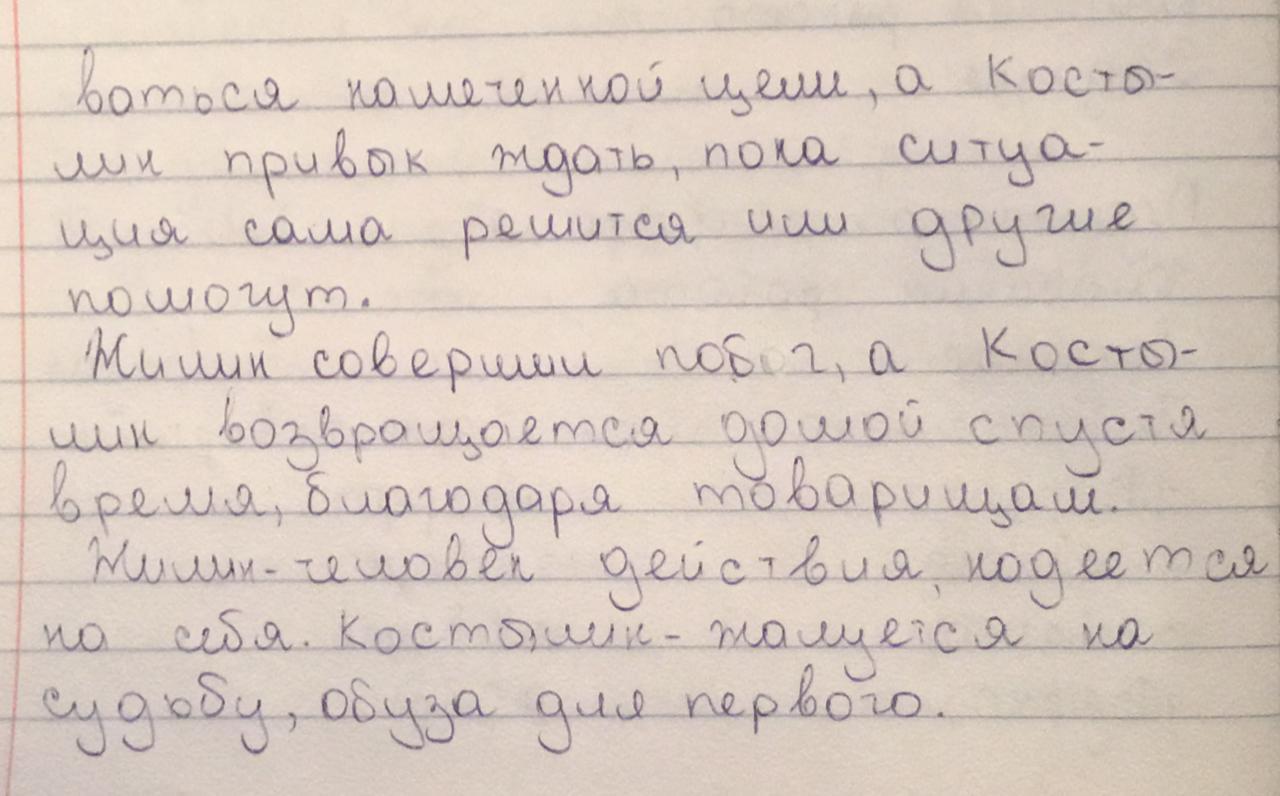 ваться намеченной цели, а Косты-
лин привык ждать, пока ситуа-
ция сама решится или другие
помогут.
Жилин совершил побег, а Косты-
лин возвращается домой спустя
время, благодаря товарищам.
Жилин-человек действия, надеется
на себя. Костылин-жалуется на
судьбу, обуза для первого.